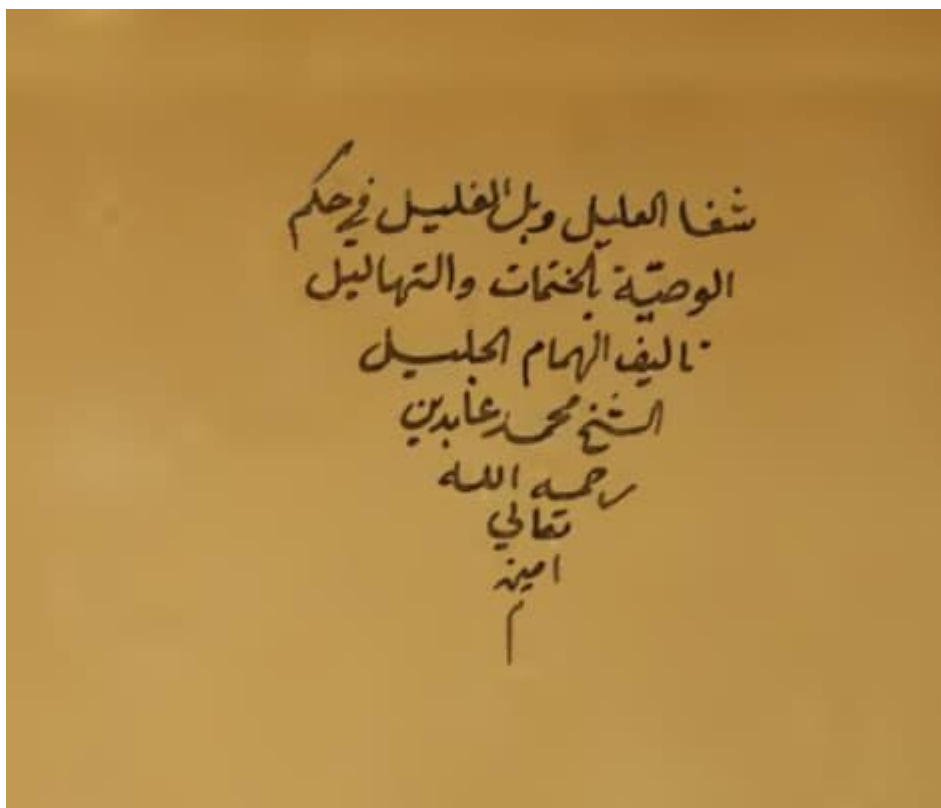 شفا العليل وبل الغليل في حكم
الوصيّة بالختمات والتهاليل
تاليف الهمام الجليل
الشيخ محمد عابدين
رحمه الله
تعالي
امين
م